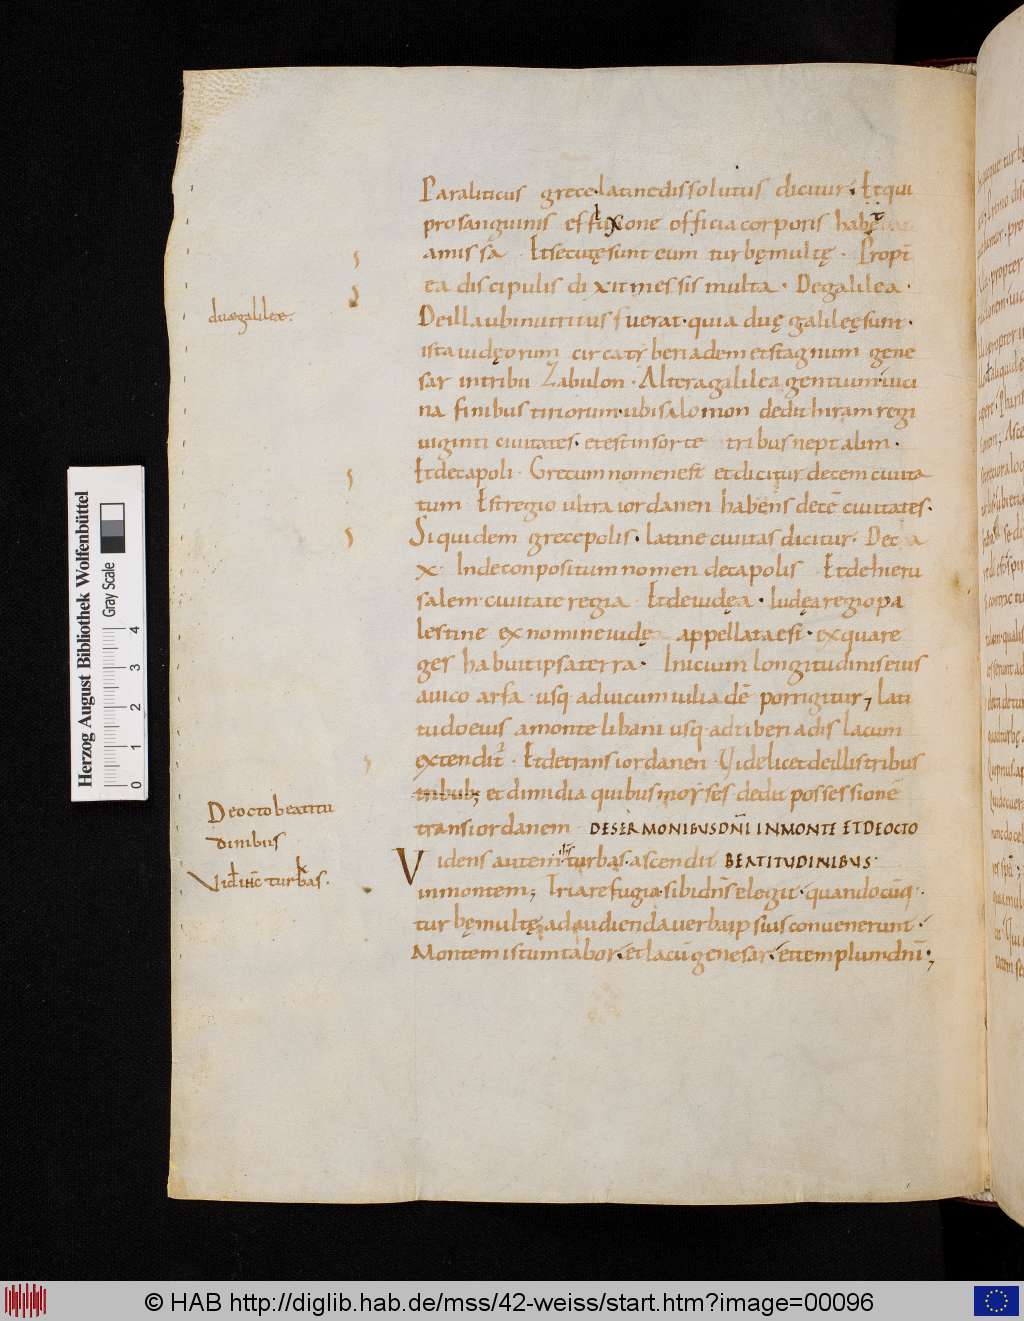 Paraliticus grece· latine dissolutus dicitur· Et qui
pro sanguinis effuxione officia corporis hab&
amissa Et secutę sunt eum turbę multę · Propt̄
ea discipulis dixit messis multa · De galilea ·
duę galileæ.
De illa ubi nutritus fuerat· quia duę galileę sunt·
ista iudęorum circa tyberiadem et stagnum gene
sar in tribu Zabulon · Altera galilea gentium· iuci
na finibus tiriorum· ubi salomon dedit hiram regi
uiginti ciuitates· et est in sorte tribus neptalim ·
Et decapoli · Grecum nomen est et dicitur decem ciuita
tum Est regio ultra iordanen habens decē ciuitates·
Siquidem grece polis · latine ciuitas dicitur· Dec a
x· Inde conpositum nomen decapolis Et de hieru
salem· ciuitate regia Et de iudęa · Iudęa regio pa
lestine ex nomine iudę appellata est · ex qua re
ges habuit ipsa terra · Initium longitudinis eius
a uico arfa · usq· ad uicum iulia dē porrigitur; lati
tudo eius a monte libani usq· ad tiberiadis lacum
extendit̄ · Et de trans iordanen · Videlicet de illis tribus
tribub; et dimidia quibus moyses dedit possessionē
De octo beatitu
dinibus
trans iordanem DE SERMONIBUS DN̄I IN MONTE ET DE OCTO
Videns autem turbas· ascendit BEATITUDINIBUS·
Vid ihc turbas·
in montem; Tria refugia sibi dn̄s elegit · quandocūq·
turbę multę ad audienda uerba ipsius conuenerunt ·
Montem istum tabor· et lacū genesar· et templum dn̄i ;
Herzog August Bibliothek Wolfenbüttel
Gray Scale
0 1 2 3 4
© HAB http://diglib.hab.de/mss/42-weiss/start.htm?image=00096